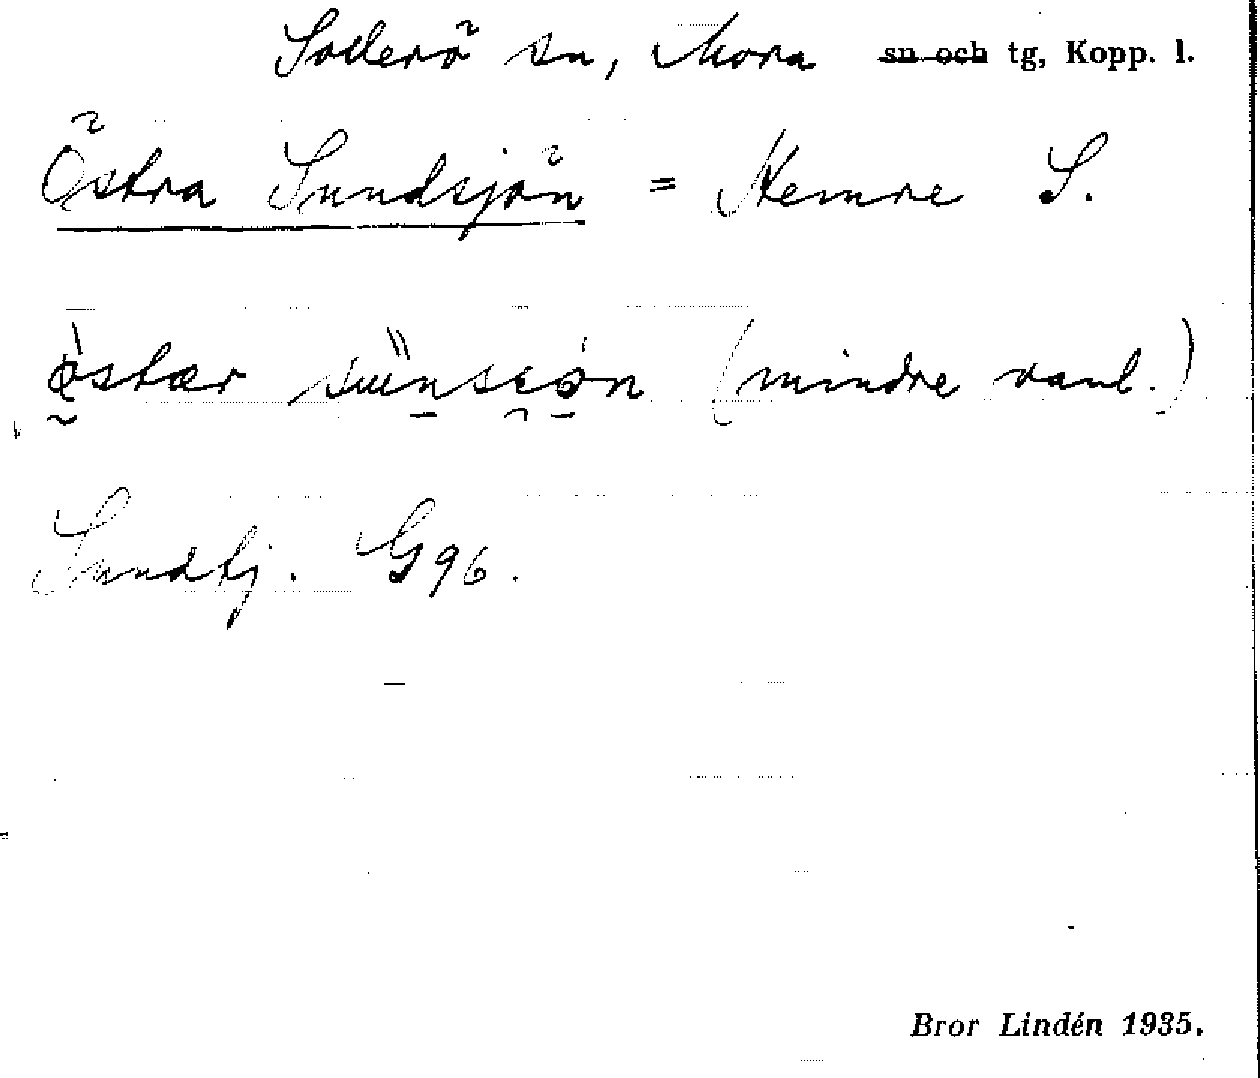 Sollerö sn, Mora sn och tg, Kopp. l.
Östra Sundsjön = Hemre S.
östær (mindre vanl.)
Sundbj. G96.
Bror Lindén 1935.